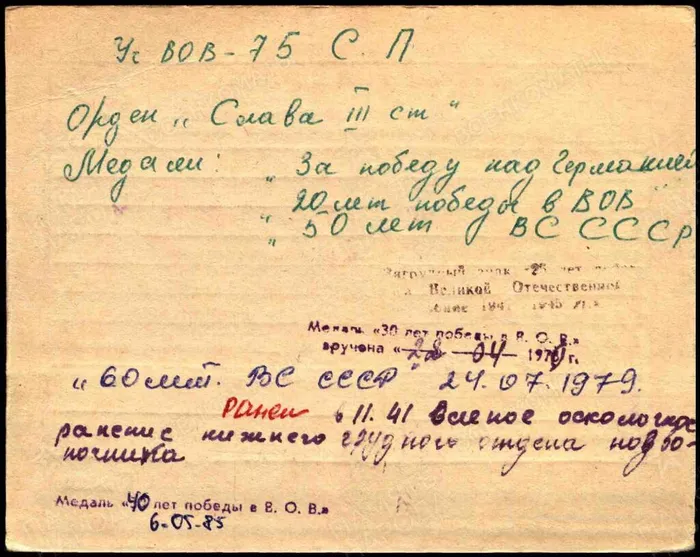 Уч ВОВ - 75 С. П
Орден „ Слава III ст "
Медали: „ За победу над Германией
„ 20 лет победы в ВОВ "
„ 50 лет ВС СССР
Нагрудный знак «25 лет
Великой Отечественной
1941 1945 гг.»
Медаль «30 лет победы в В. О. В.»
вручена « 28 » 04 197 г.
„ 60 лет. ВС СССР " 24.07.1979.
Ранен в 11.41 слепое осколочное
ранение нижнего грудного отдела позво-
ночника
Медаль «40 лет победы в В. О. В.»
6-05-85